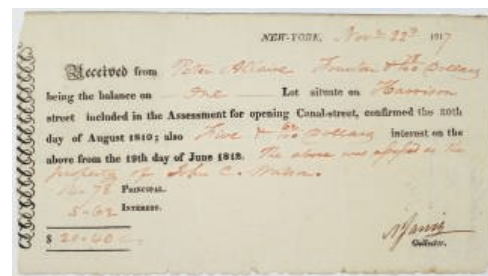 NEW-YORK, Nov. 22d 1817
Received from Peter Fourteen & 78 Dollars
being the balance on One Lot situate on Harrison
street included in the Assessment for opening Canal-street, confirmed the 20th
day of August 1810; also Five & 62 Dollars interest on the
above from the 19th day of June 1818. The above was assessed as the
property of John C.
14.78 PRINCIPAL.
5.62 INTEREST.
$ 20.40
Collector.